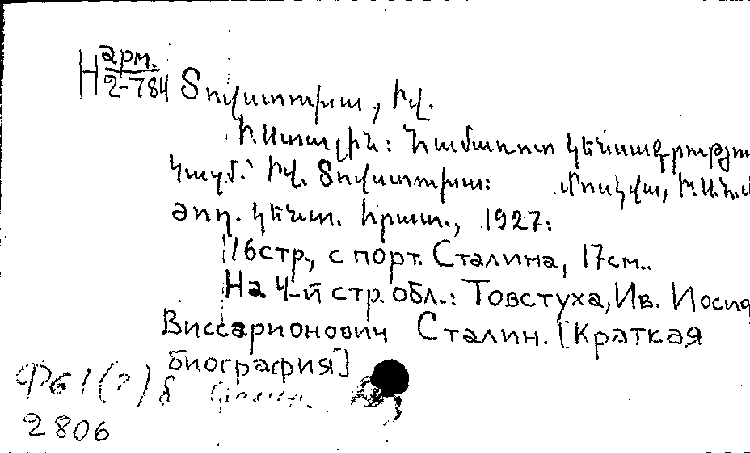 Н арм. 2-784 Տովստուխա, Իվ.
Ի. Ստալին: Համառոտ կենսագրությու
Կազմ.՝ Իվ. Տովստուխա: Մոսկվա,
ժող. կենտ. հրատ., 1927:
16стр., с порт. Сталина, 17см..
На 4-й стр. обл.: Товстуха, Ив. Иосиф
Виссарионович Сталин. [Краткая
биография]
Фб 1(?) б
2806